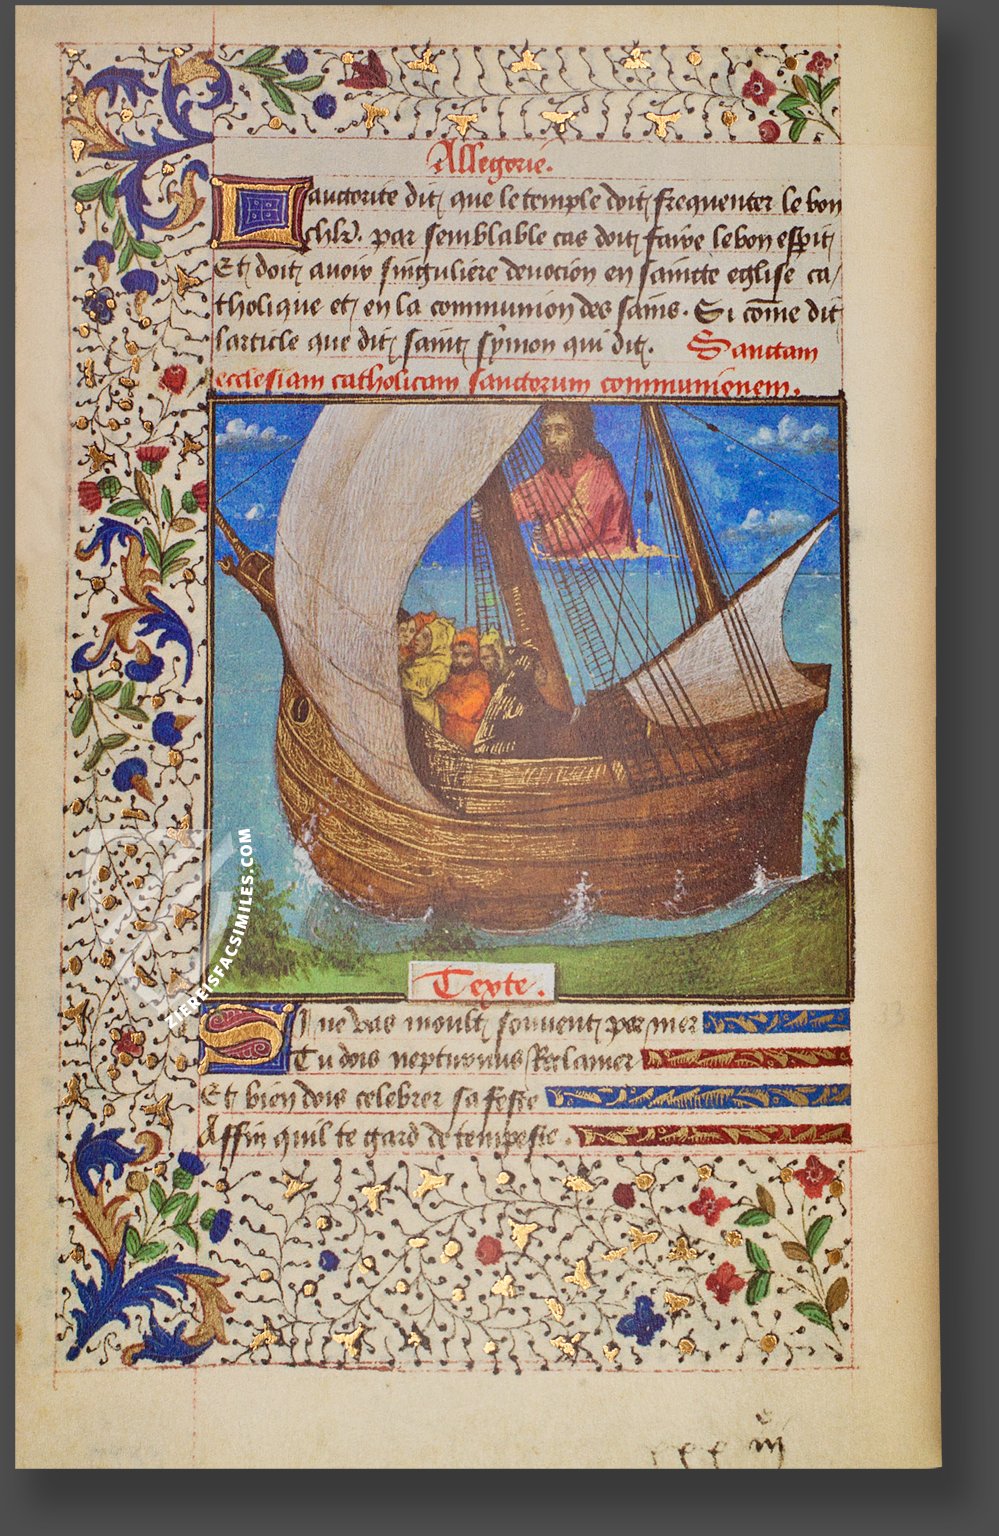 Allegorie.
Lauctorite dit que le temple doit frequenter le bon
chlr. par semblable cas doit faire le bon esperit
Et doit avoir singuliere devocion en saincte eglise ca/
tholique et en la communion des sains. Si come dit
larticle que dit saint symon qui dit. Sanctam
ecclesiam catholicam sanctorum communionem.
Texte.
Si ne vas moult souvent par mer
Tu dois neptunus Reclamer
Et bien dois celebrer sa feste
Affin quil te gard de tempeste.
ZIEREISFACSIMILES.COM